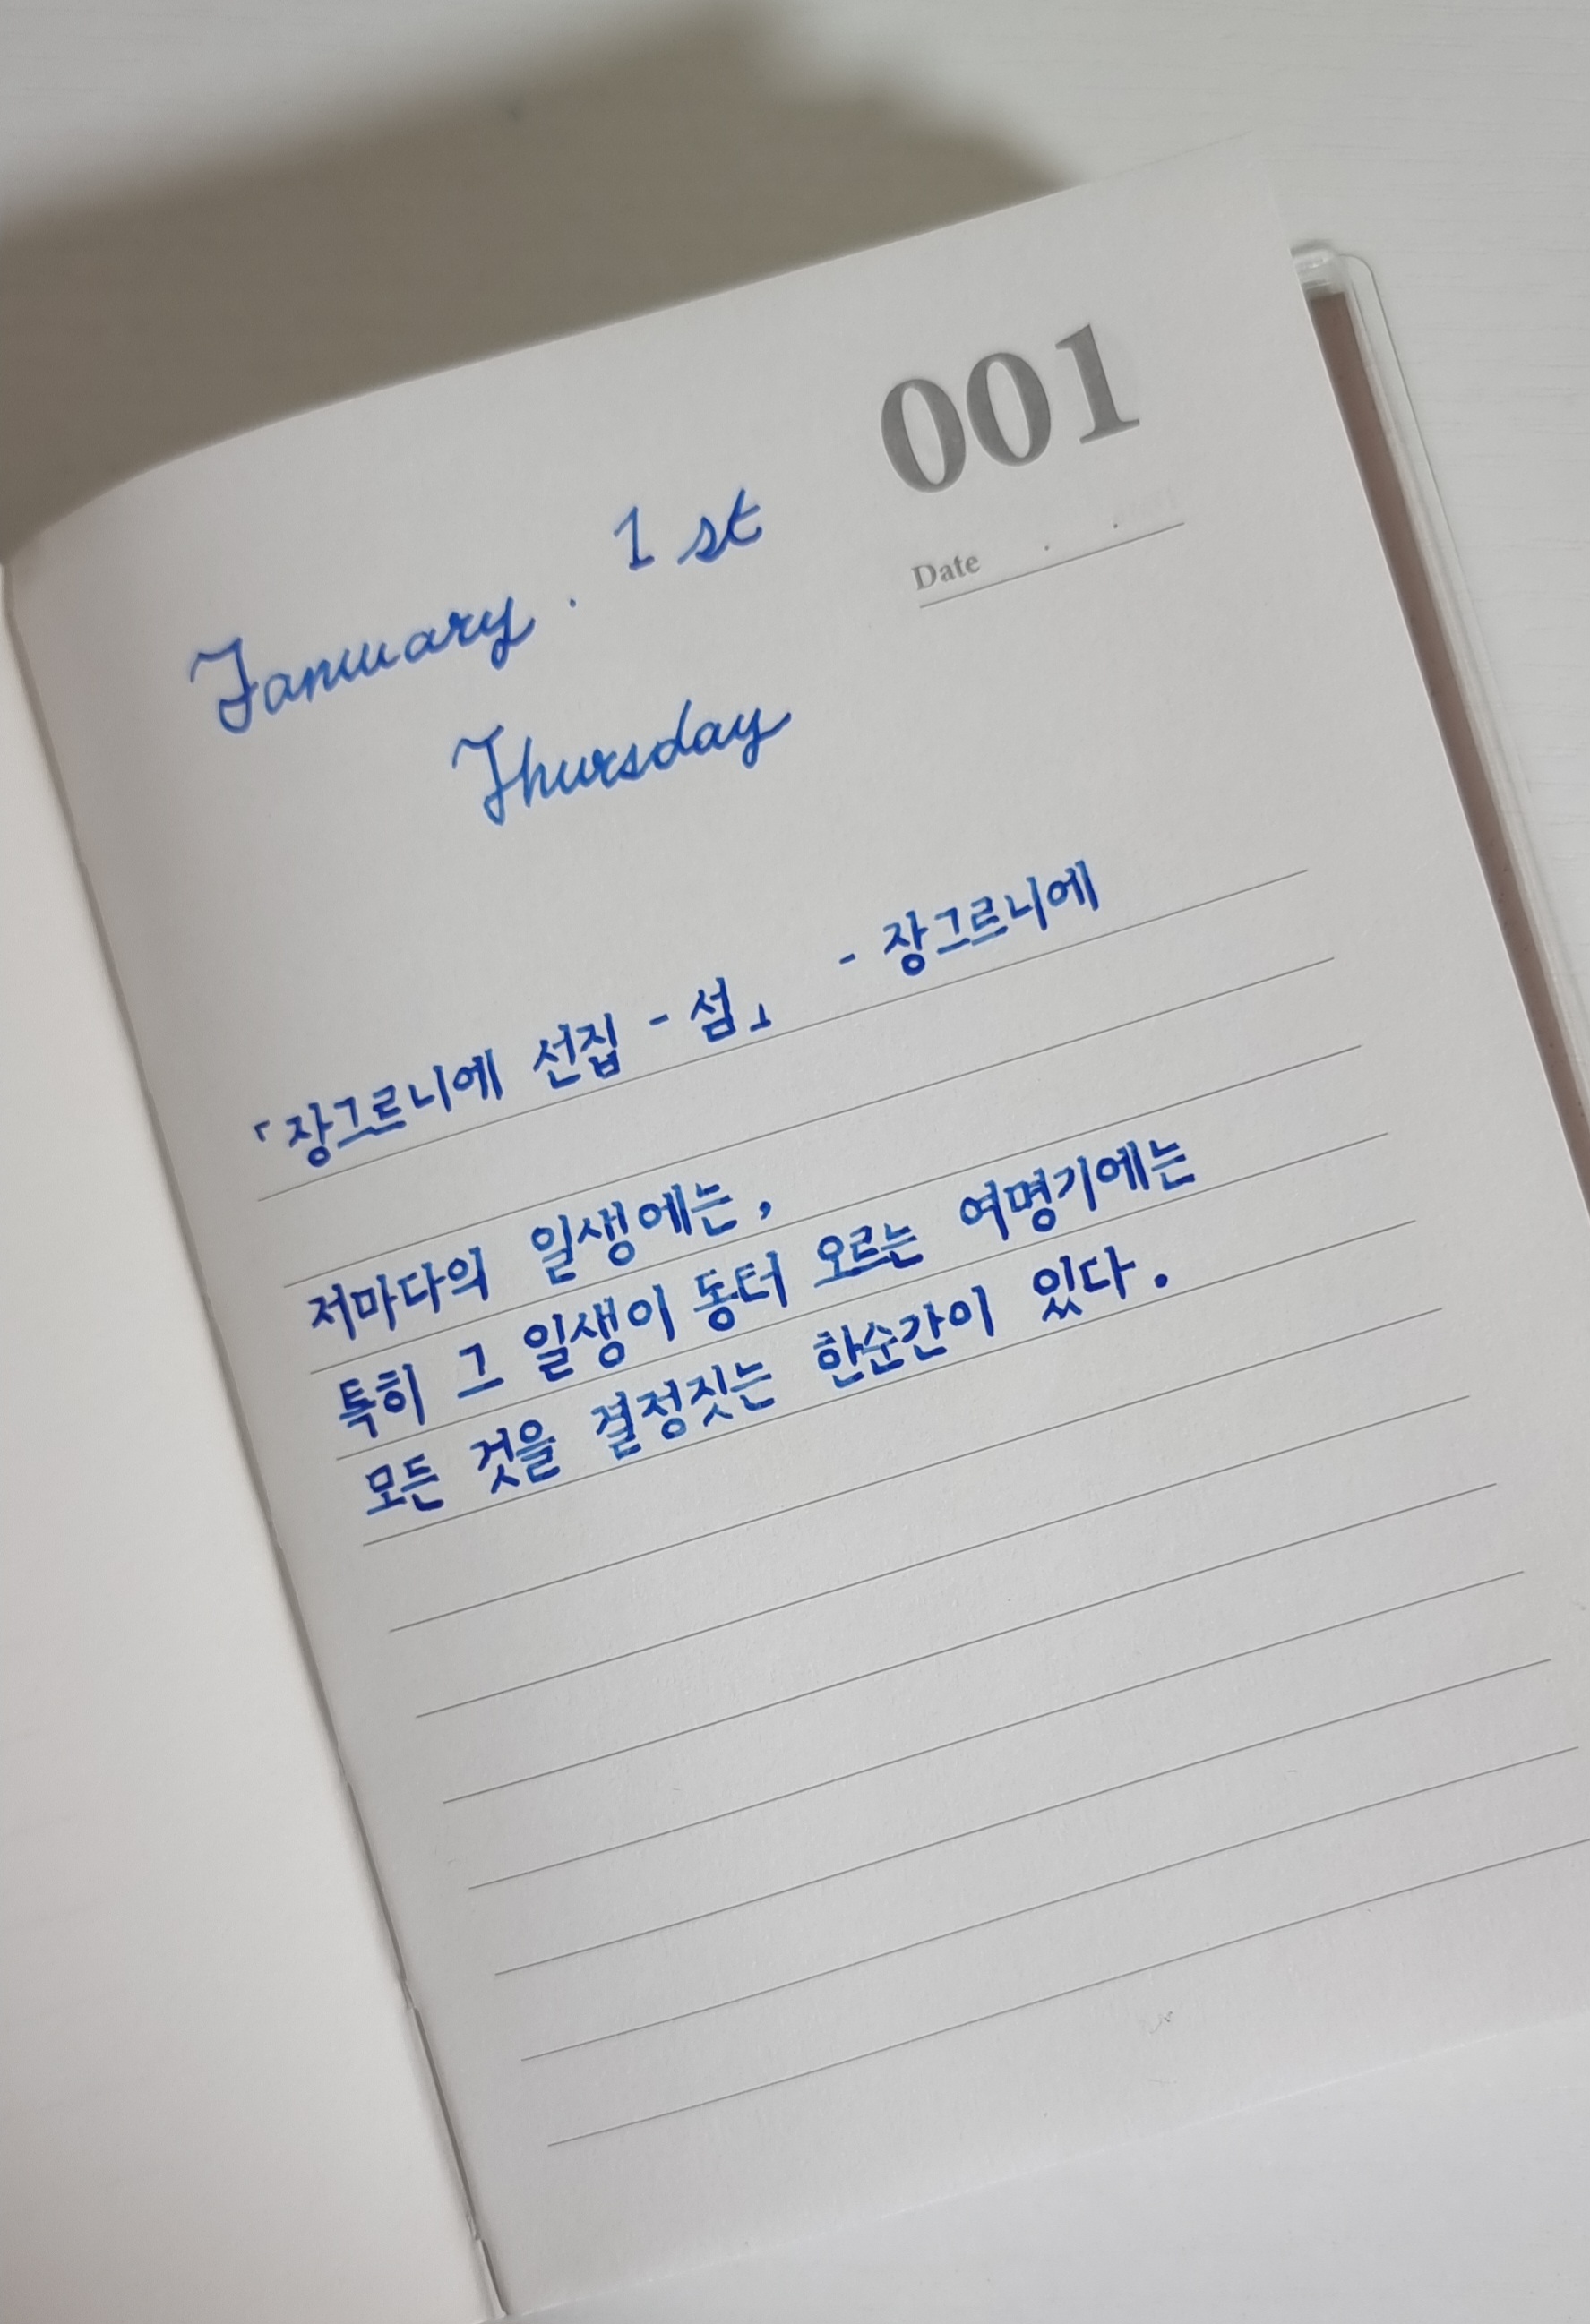 001
Date . .
January . 1 st
Thursday
「장그르니에 선집 - 섬」 - 장그르니에
저마다의 일생에는,
특히 그 일생이 동터 오르는 여명기에는
모든 것을 결정짓는 한순간이 있다.